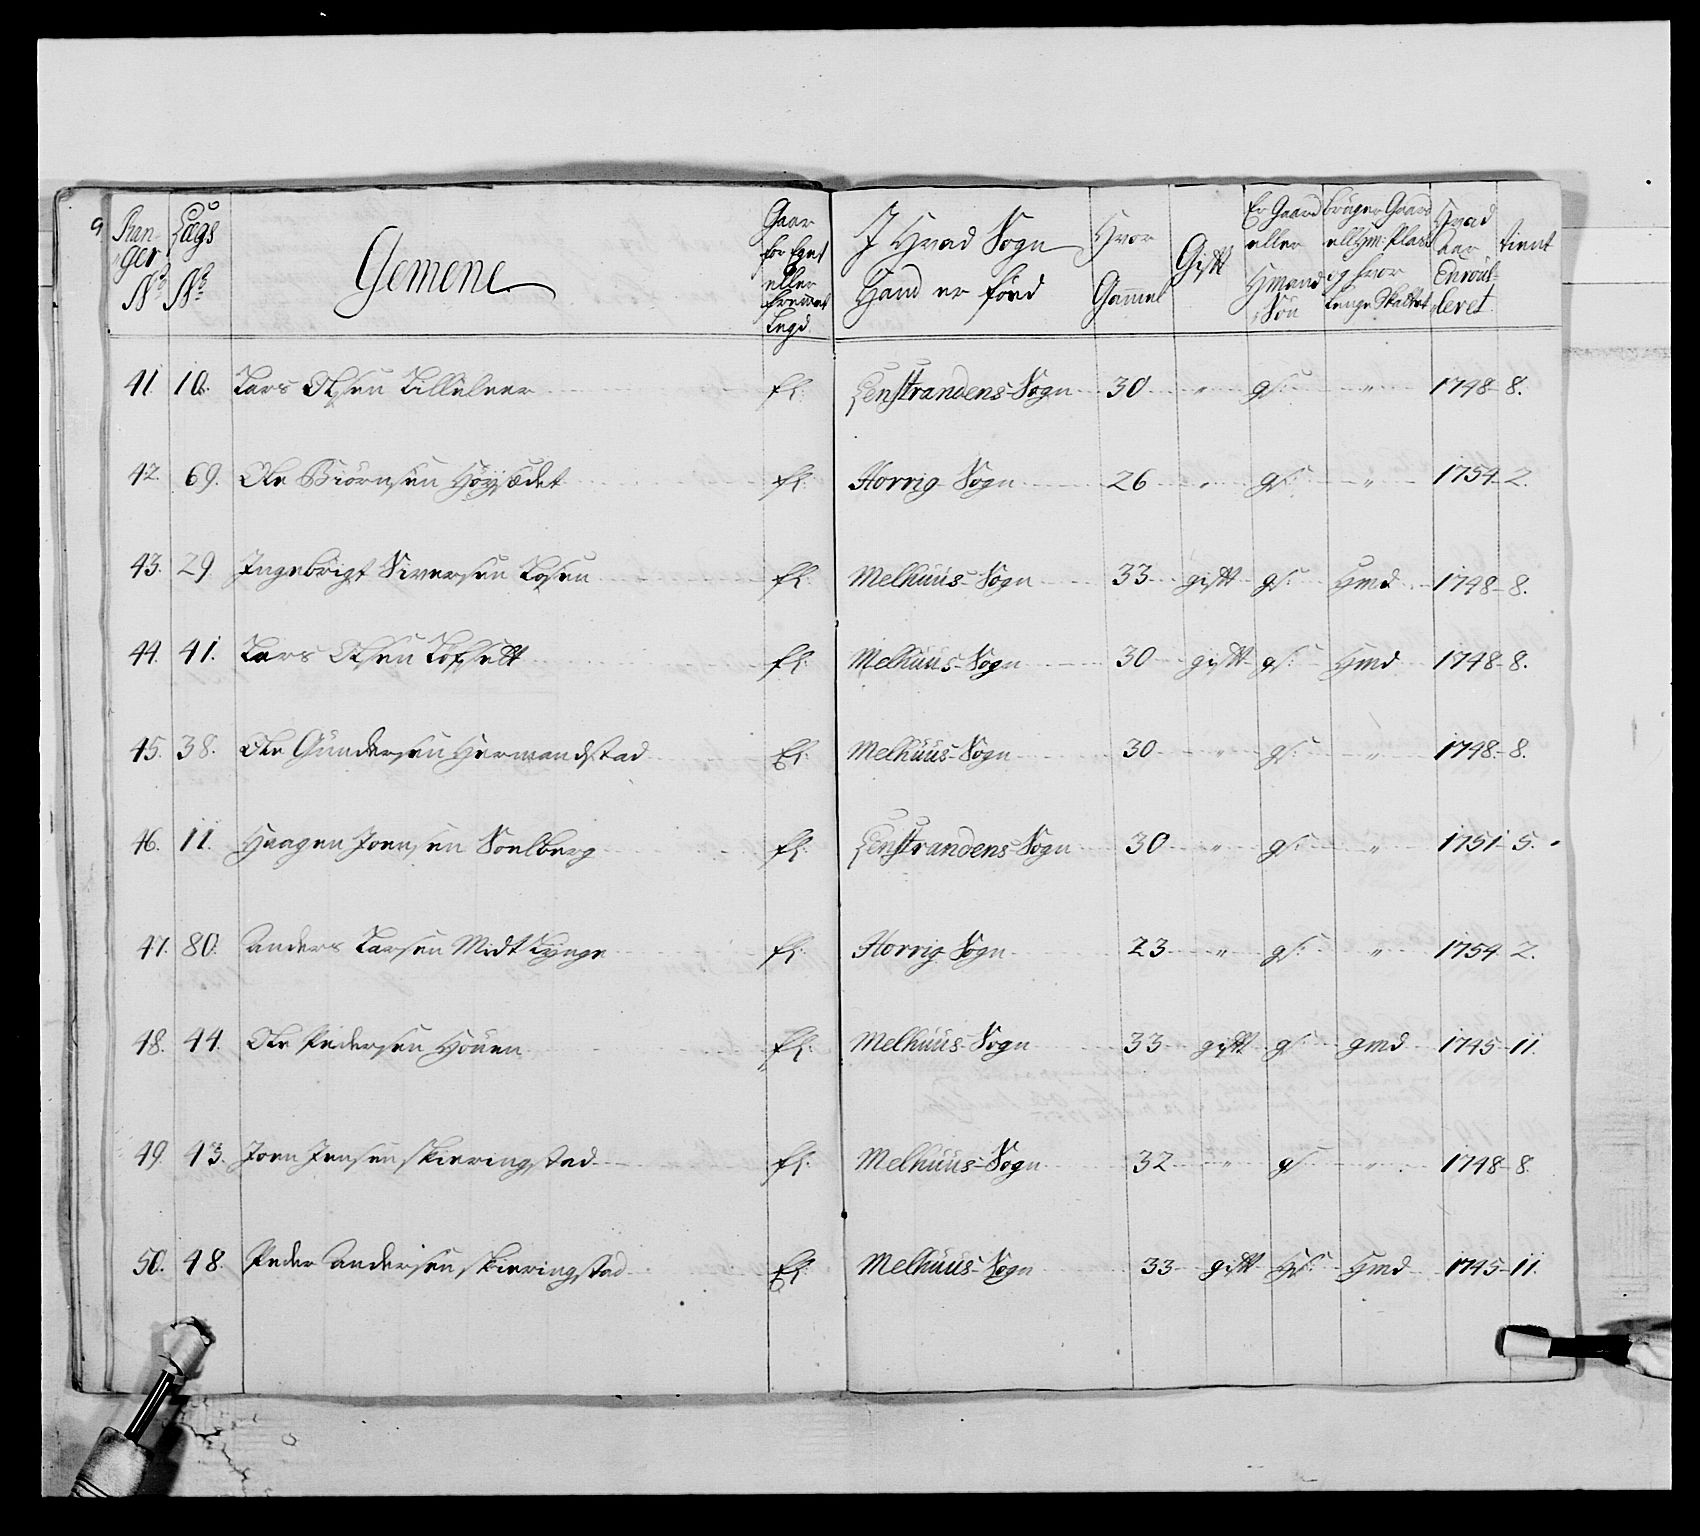 Ran-
ger
No
Lægs
No
Gemene
Gaar
for Eget
eller
fremet
Legd
I Hvad Sogn
Hand er föed
Hvor
Gammel
Gifft
Er Gaard
eller
Hmand
Sön
bruger Gaard
ell Hm: Plads
og hvor
Lenge Skattet
Hvad
Aar
Enroul-
leret
tient
41. 10. Lars Olsen Lilleleer fl: Leinstrandens Sogn 30 " gs: " 1748 - 8.
42. 69. Ole Biörnsen Höysædet fl: Horrig Sogn 26 " gs: " 1754 - 2.
43. 29. Ingebrigt Siversen Losen fl: Melhuus Sogn 33 gifft gs: Hmd 1748 - 8.
44. 41. Lars Olsen Löfsett fl: Melhuus Sogn 30 gifft gs: Hmd 1748 - 8.
45. 38. Ole Gundersen Hermandstad El: Melhuus Sogn 30 " gs: " 1748 - 8.
46. 11. Haagen Joensen Soelberg fl: Leinstrandens Sogn 30 " gs: " 1751 - 5.
47. 80. Anders Larsen Midt Lynge fl: Horrig Sogn 23 " gs: " 1754 - 2.
48. 44. Ole Pedersen Houen fl: Melhuus Sogn 33 gifft gs: gmd 1745 - 11.
49. 43. Joen Jensen Skieringstad fl: Melhuus Sogn 32 " gs: " 1748 - 8.
50. 48. Peder Andersen Skieringstad El: Melhuus Sogn 33 gifft Hs: Hmd 1745 - 11.